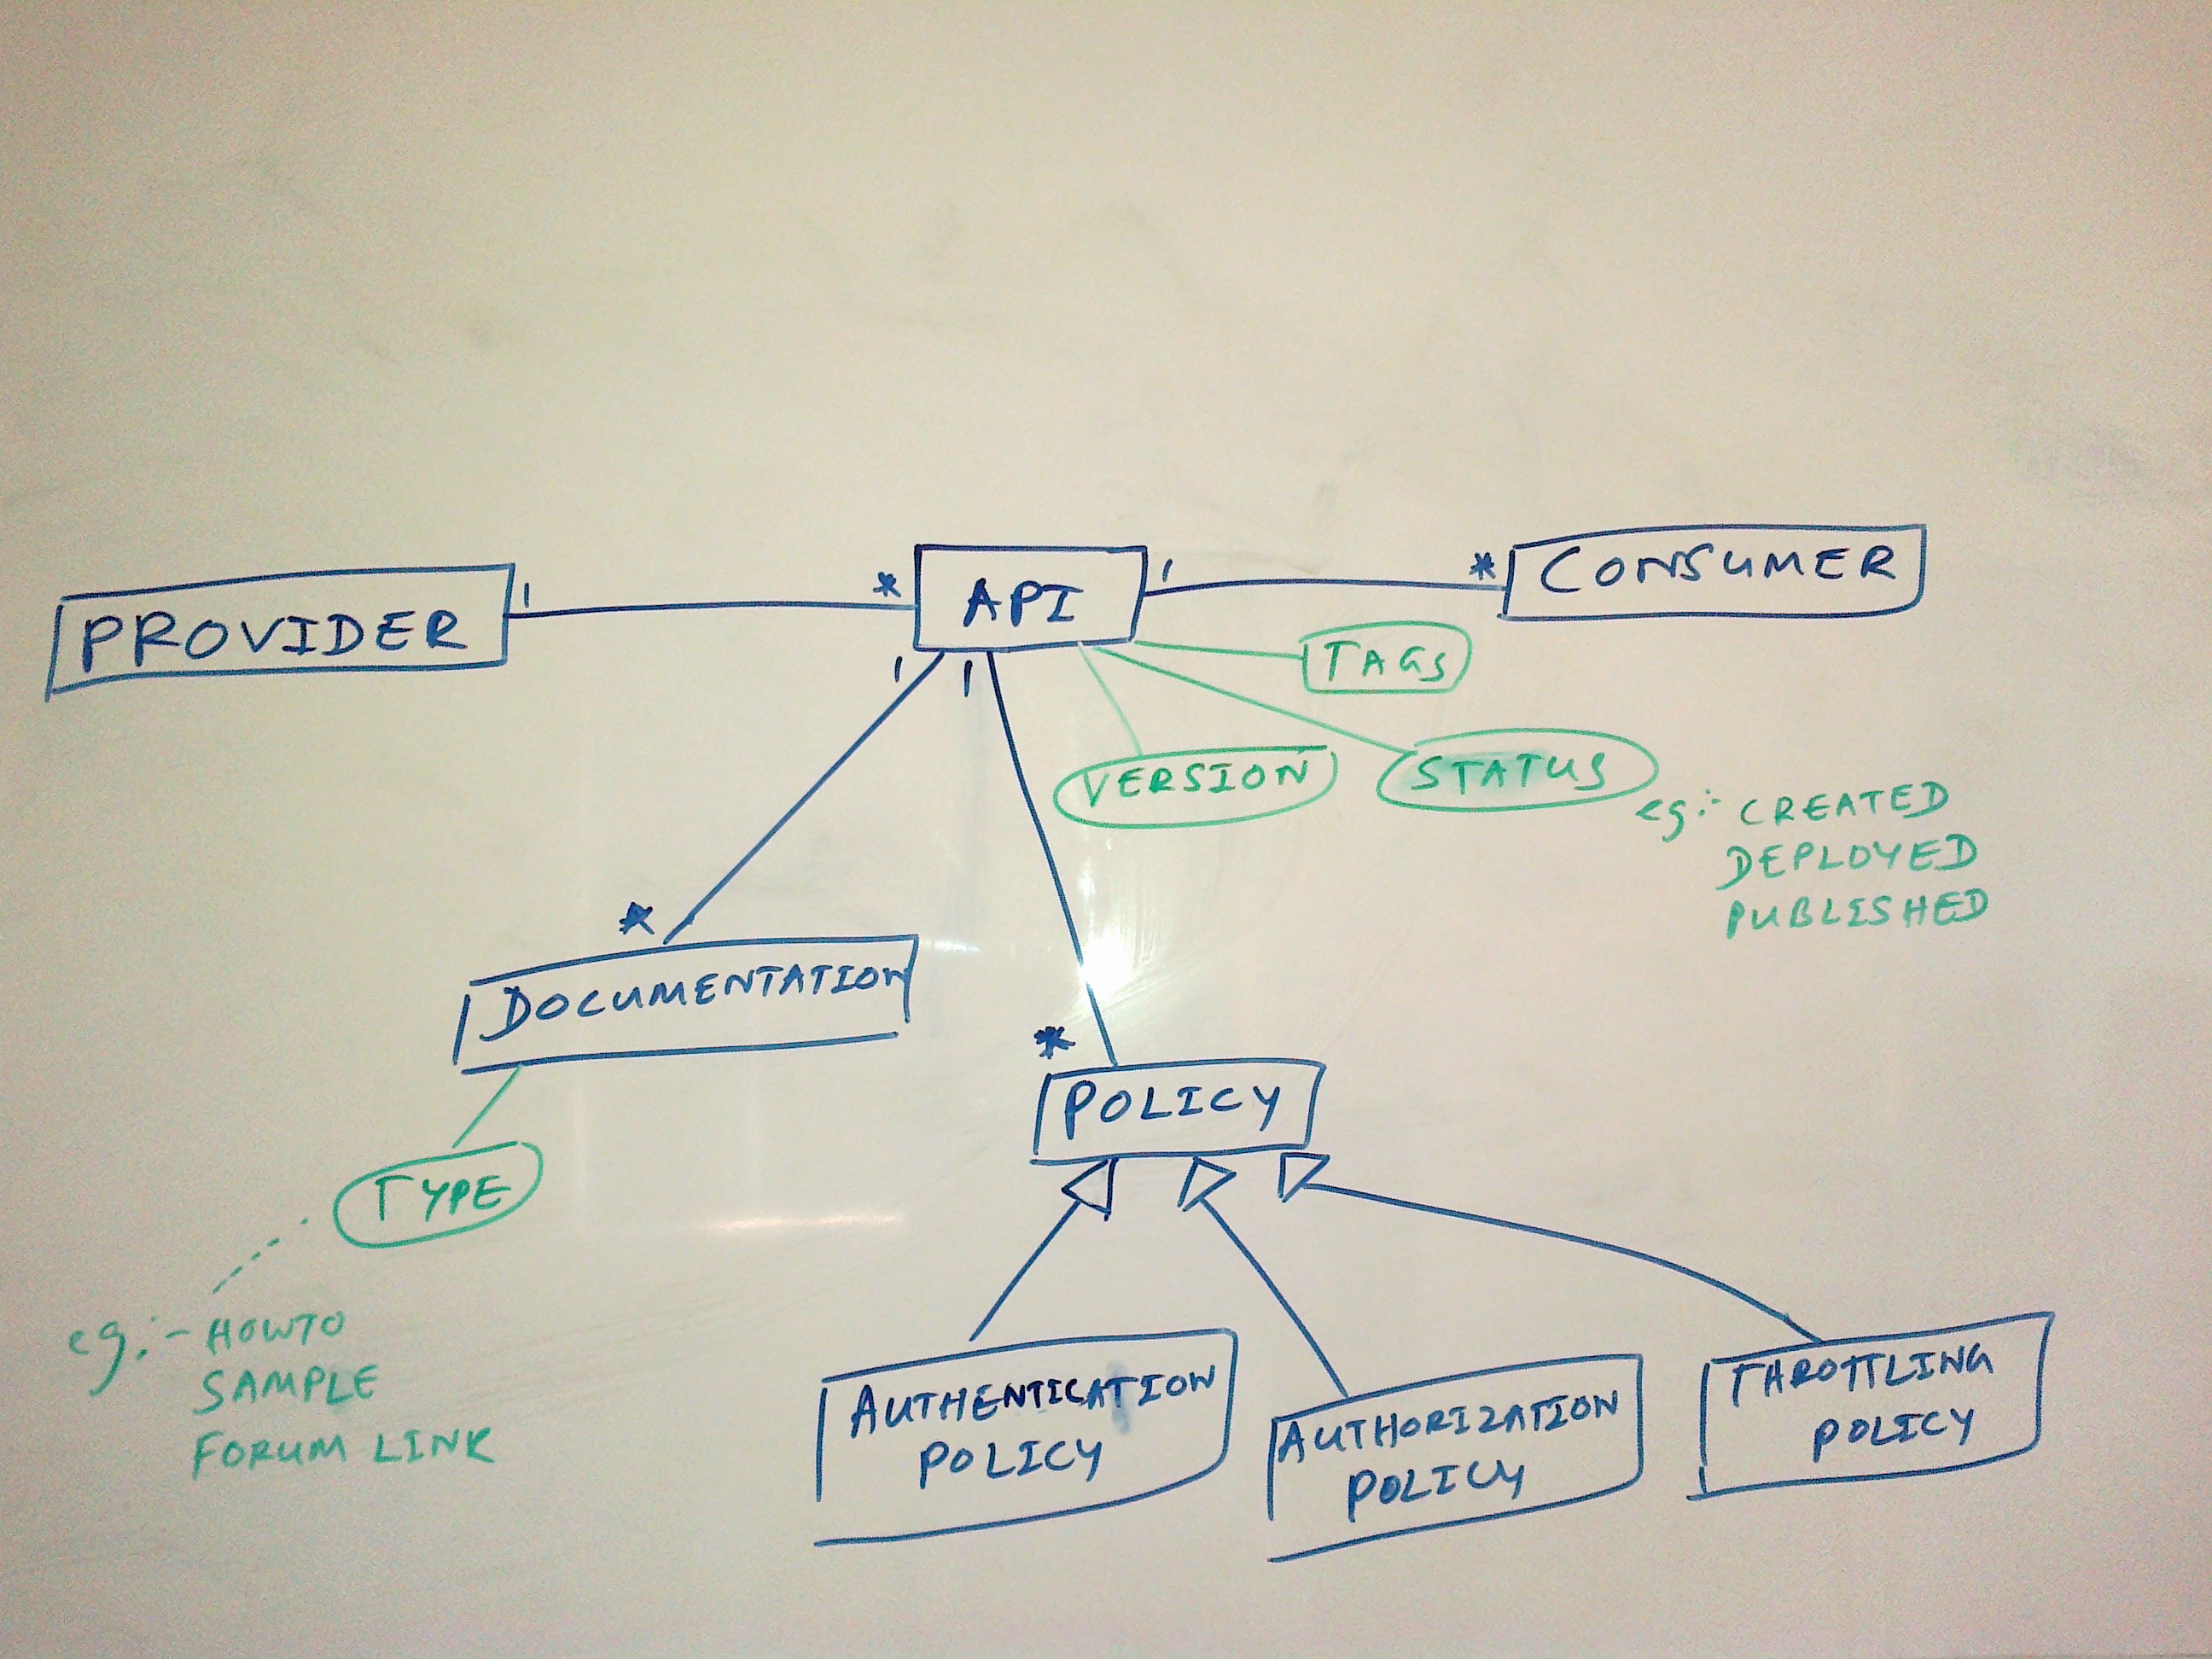 PROVIDER
1
*
API
1
*
CONSUMER
TAGS
VERSION
STATUS
eg:- CREATED
DEPLOYED
PUBLISHED
1
1
*
DOCUMENTATION
TYPE
eg:- HOWTO
SAMPLE
FORUM LINK
*
POLICY
AUTHENTICATION
POLICY
AUTHORIZATION
POLICY
THROTTLING
POLICY